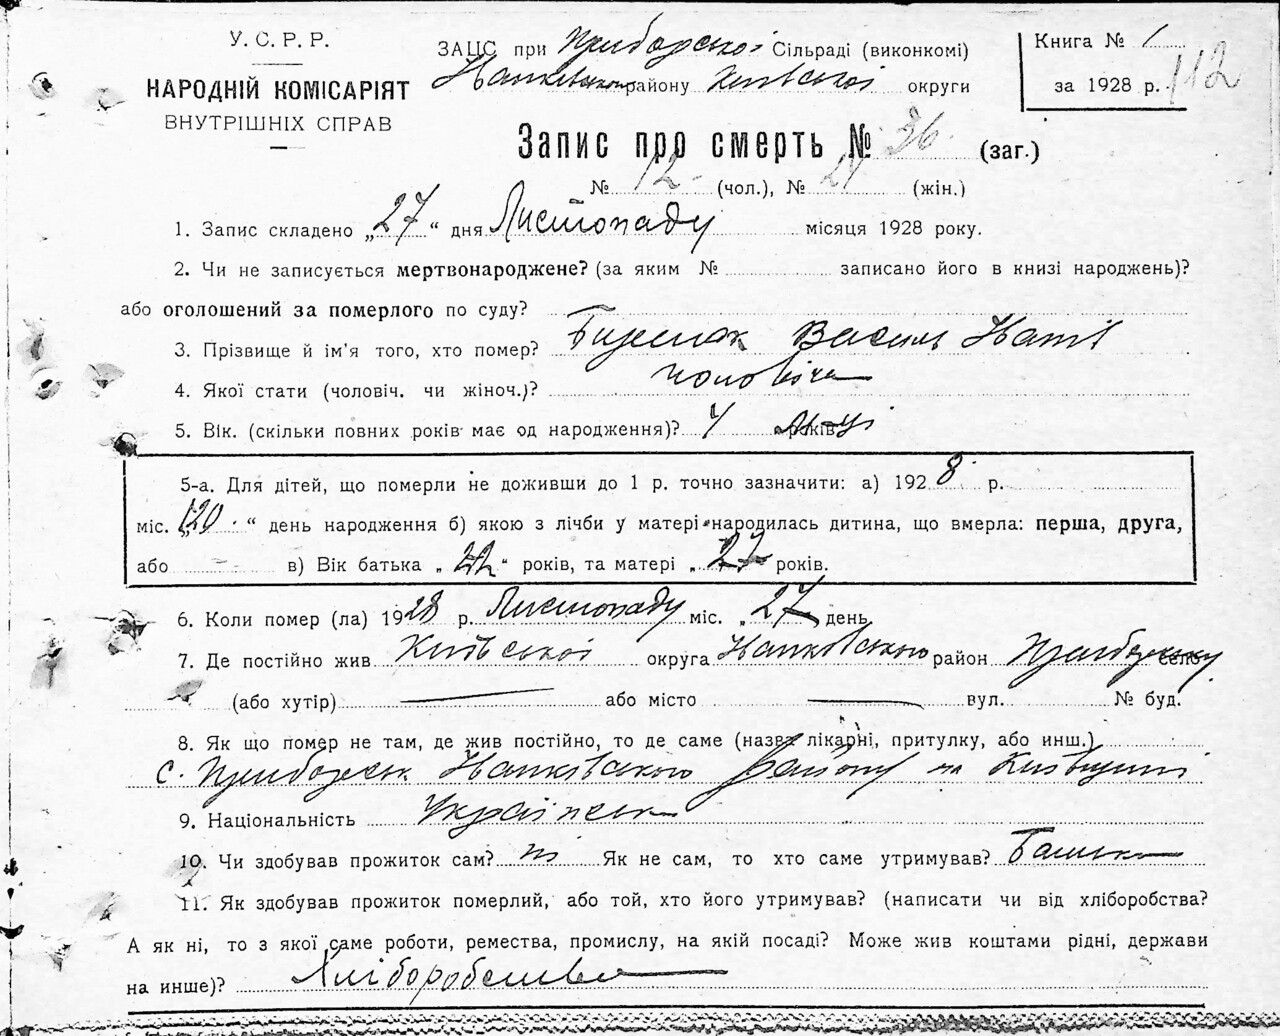 У. С. Р. Р.
НАРОДНІЙ КОМІСАРІЯТ
ВНУТРІШНІХ СПРАВ
ЗАЦС при Приборской Сільраді (виконкомі)
району Київської округи
Книга № 1
за 1928 р.
112
Запис про смерть № 36 (заг.)
№ 12 (чол.), № 24 (жін.)
1. Запис складено „27“ дня Листопаду місяця 1928 року.
2. Чи не записується мертвонароджене? (за яким № записано його в книзі народжень)?
або оголошений за померлого по суду?
3. Прізвище й ім'я того, хто помер? Василь
4. Якої стати (чоловіч. чи жіноч.)? чоловіча
5. Вік. (скільки повних років має од народження)?
5-а. Для дітей, що померли не доживши до 1 р. точно зазначити: а) 1928 р.
міс. „20“ день народження б) якою з лічби у матері народилась дитина, що вмерла: перша, друга,
або в) Вік батька „22“ років, та матері „22 років.
6. Коли помер (ла) 1928 р. Листопаду міс. „27 день
7. Де постійно жив Київської округа район село
(або хутір) або місто вул. № буд.
8. Як що помер не там, де жив постійно, то де саме (назва лікарні, притулку, або инш.)
с. Приборськ Іванківського району на Київщині
9. Національність Українськ
10. Чи здобував прожиток сам? ні Як не сам, то хто саме утримував? Батько
11. Як здобував прожиток померлий, або той, хто його утримував? (написати чи від хліборобства?
А як ні, то з якої саме роботи, ремества, промислу, на якій посаді? Може жив коштами рідні, держави
на инше)? Хліборобство